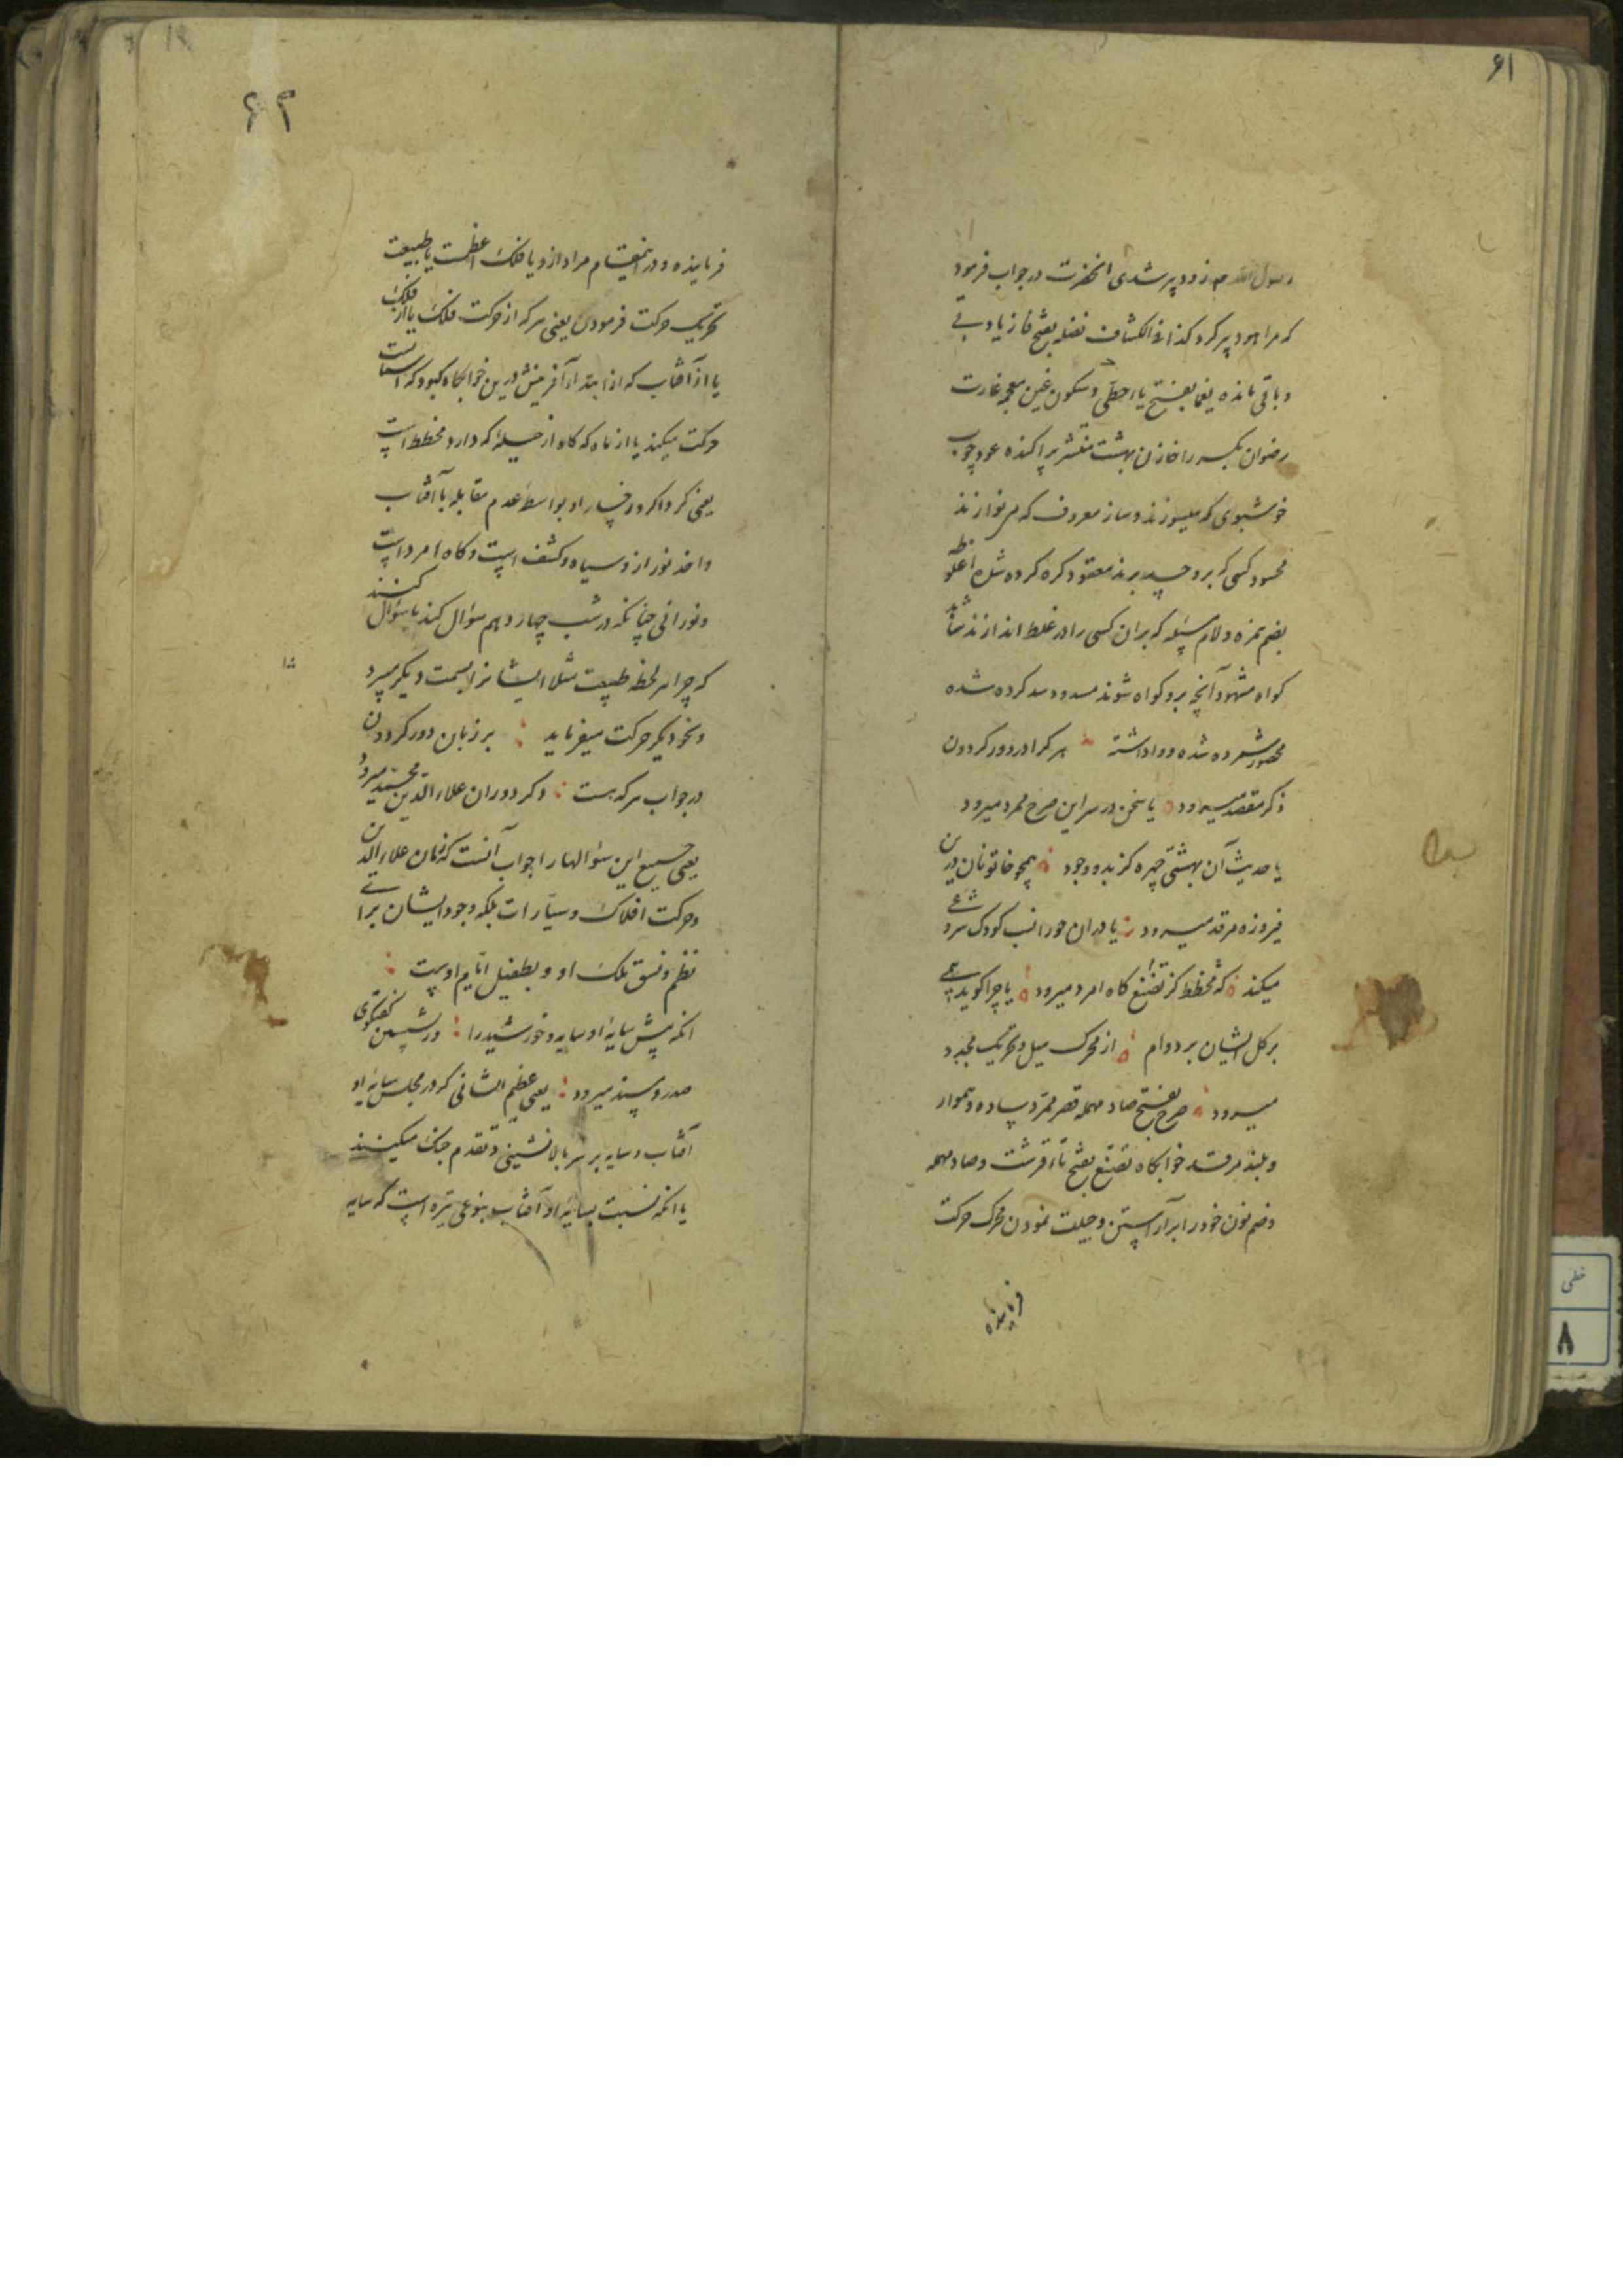 ۶۱
رسول الله صم زود پیر شدی انحضرت در جواب فرمود
که مرا هود پیر کرد کذا فی الکشاف فضله بفتح فا زیادتی
و باقی مانده یغما بفتح یاء حطی و سکون غین معجمه غارت
رضوان بکسر را خازن بهشت منتشر پراکنده عود چوب
خوشبوی که میسوزند و ساز معروف که می نوازند
محسود کسی که برو حسد برند معقود کره کرده شده اغلوطه
بضم همزه و لام مسئله که بدان کسی را در غلط اندازند شاهد
کواه مشهود آنچه برو کواه شوند مسدود سد کرده شده
محصور شمرده شده و واداشته هر کرا در دور کردون
ذکر مقصد میرود یا سخن در سر این صرح ممرد میرود
یا حدیث آن بهشتی چهره کز بدو وجود همچو خاتونان درین
فیروزه مرقد میرود یا دران حورانسب کودک شروعی
میکند که مخطط کز تصنع کاه امرد میرود یا چرا کوید همی
بر کل ایشان بر دوام از محرک میل و تحریک مجدد
میرود صرح بفتح صاد مهمله قصر ممرد ساده و هموار
و بلند مرقد خوابکاه تصنع بفتح تاء قرشت و صاد مهمله
و ضم نون خود را بر آراستن و حیلت نمودن محرک حرکت
فرماینده
۶۲
فرماینده و درانمقام مراد ازو یا فلک اعظمست یا طبیعت
تحریک حرکت فرمودن یعنی هر که از حرکت فلک یا از فلک
یا از آفتاب که از ابتداء آفرینش درین خوابکاه کبود که آسمانست
حرکت میکند یا از ماه که کاه از حیله که دارد مخطط است
یعنی کرداکرد رخسار او بواسطه عدم مقابله با آفتاب
و اخذ نور ازو سیاه و کشف است و کاه امرد است
و نورانی چنانکه در شب چهاردهم سؤال کند یا سؤال کنند
که چرا هر لحظه طبیعت مثلا ایشانرا بسمت دیکر میبرد
و بخو دیکر حرکت میفرماید بر زبان دور کردون
در جواب هر که هست ذکر دوران علاء الدین محمد میرود
یعنی جمیع این سؤالها را جواب آنست که زمان علاء الدین
و حرکت افلاک و سیارات بلکه وجود ایشان برای
نظم و نسق ملک او و بطفیل ایام اوست
انکه پیش سایه او سایه و خورشید را در نشستن کفتکوی
صدر و مسند میرود یعنی عظیم الشانی که در مجلس سایه او
آفتاب و سایه بر سر بالانشینی و تقدم جنک میکنند
یا انکه نسبت بسایه او آفتاب بنوعی تیره است که سایه
خطی
۸